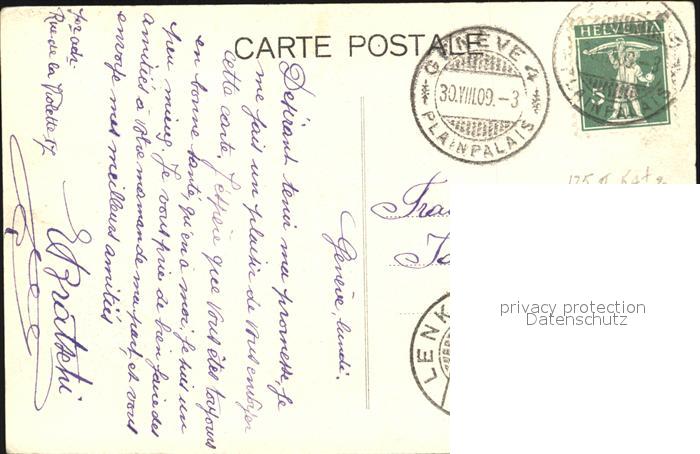 CARTE POSTALE
GENÈVE 4
30.VIII.09.-3
PLAINPALAIS
HELVETIA
5
PLAINPALAIS
Genève, lundi.
Désirant tenir ma promesse, je
me fais un plaisir de vous envoyer
cette carte. J'espère que vous êtes toujours
en bonne santé, qu'en à moi, je suis un
peu mieux. Je vous prie de bien faire des
amitiés à votre maman de ma part, et vous
envoye mes meilleurs amitiés
E. Bratschi
Rue de la Violette 27
Fra
LENK
privacy protection
Datenschutz